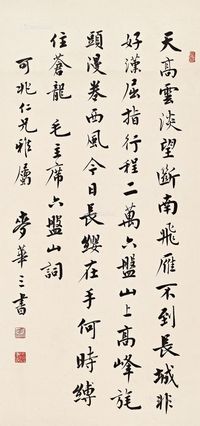 天高雲淡望斷南飛雁不到長城非
好漢屈指行程二萬六盤山上高峰旄
頭漫卷西風今日長纓在手何時縛
住蒼龍 毛主席六盤山詞
可兆仁兄雅屬
麥華三書